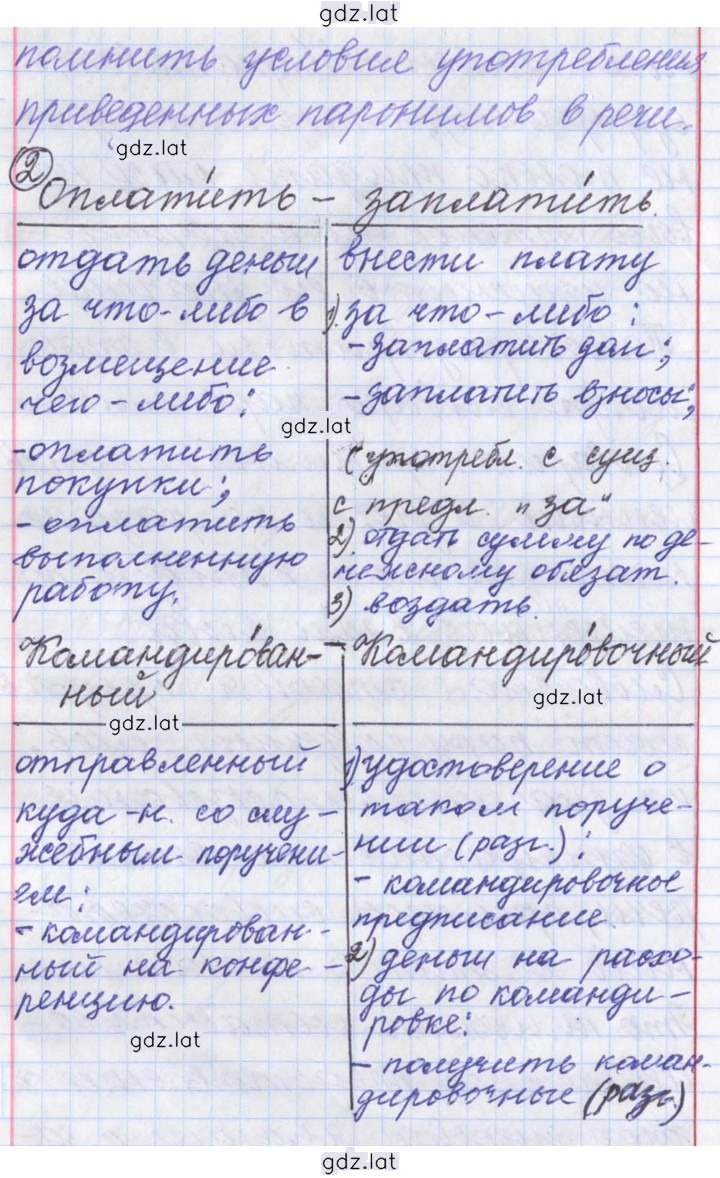 gdz.lat
помнить условия употребления
приведенных паронимов в речи.
gdz.lat
② Оплати́ть – заплати́ть.
отдать деньги
за что-либо в
возмещение
чего-либо:
-оплатить
покупки;
-оплатить
выполненную
работу.
внести плату
1) за что-либо:
-заплатить дань;
-заплатить взносы;
gdz.lat
(употребл. с сущ.
с предл. "за"
2) отдать сумму по де-
нежному обязат.
3) воздать.
Командиро́ван-
ный
– Командиро́вочный
gdz.lat
gdz.lat
отправленный
куда-н. со слу-
жебным поручени-
ем:
- командирован-
ный на конфе-
ренцию.
gdz.lat
1) удостоверение о
таком поруче-
нии (разг.):
- командировочное
предписание.
2) деньги на расхо-
ды по команди-
ровке:
- получить коман-
дировочные (разг.)
gdz.lat